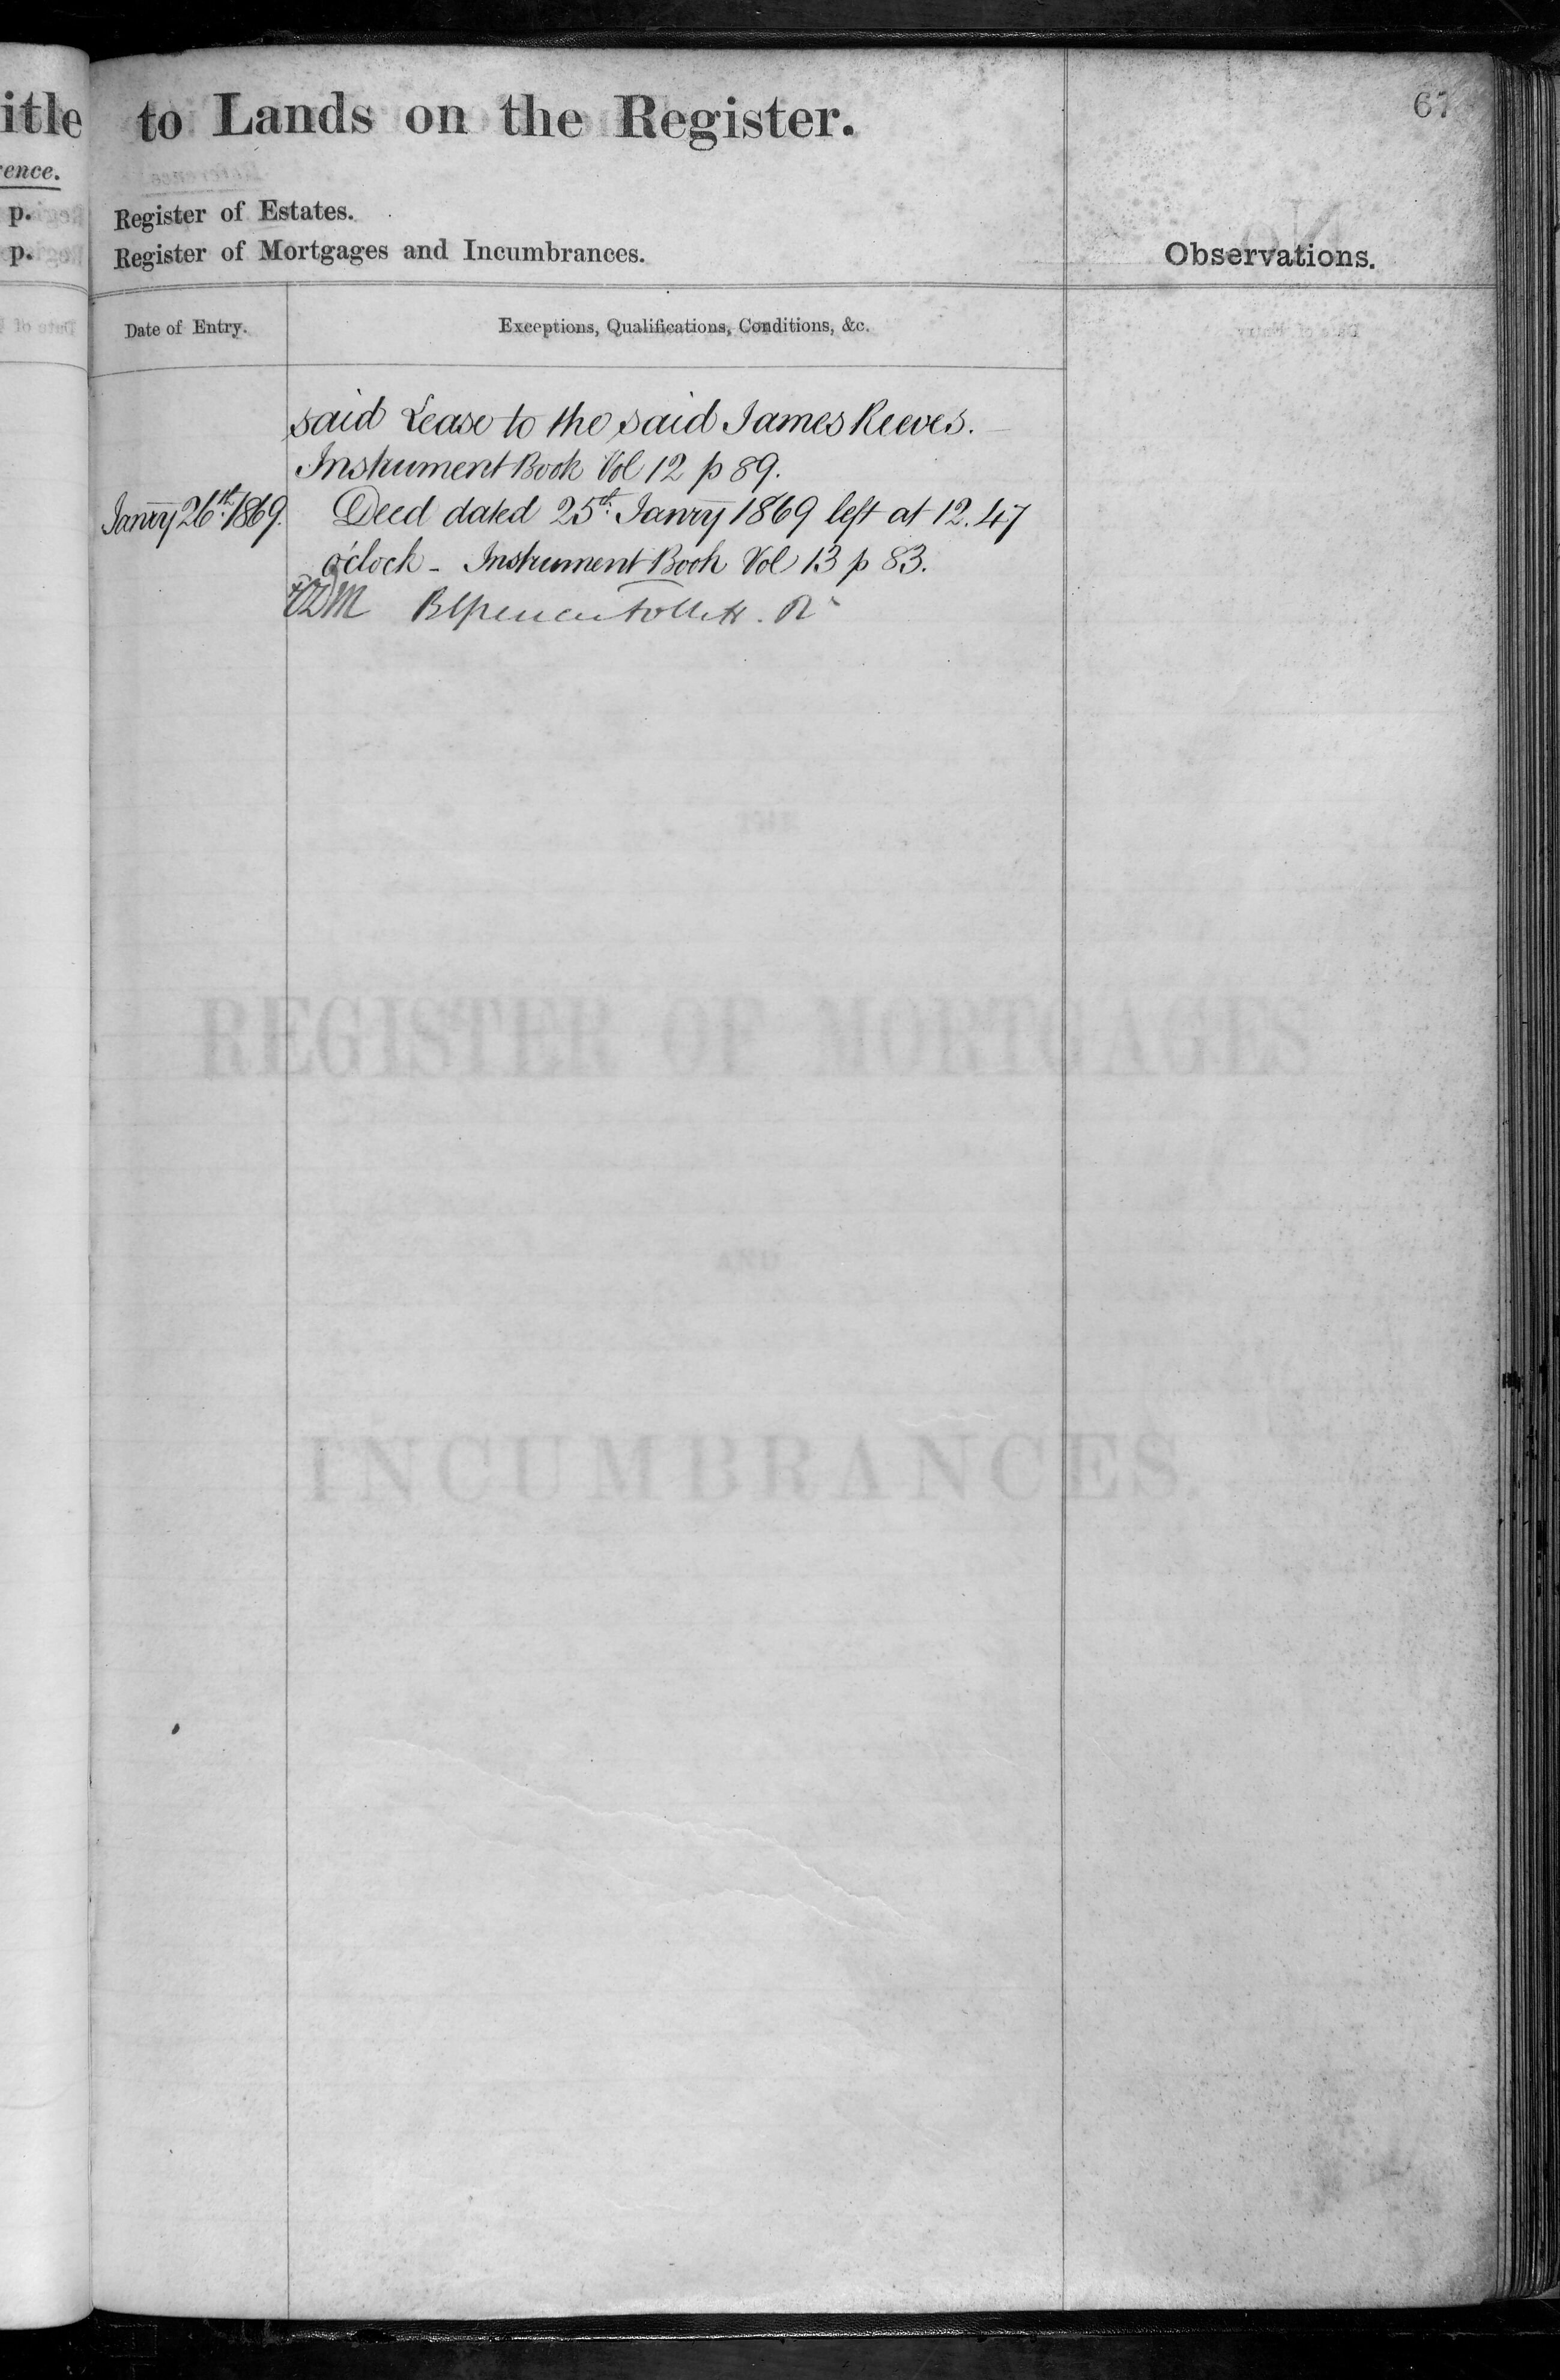 itle to Lands on the Register.
67
rence.
p. Register of Estates.
p. Register of Mortgages and Incumbrances.
Observations.
Date of Entry. Exceptions, Qualifications, Conditions, &c.
said Lease to the said James Reeves.
Instrument Book Vol 12 p 89.
Janry 26th. 1869. Deed dated 25th. Janry 1869 left at 12.47
o'clock - Instrument Book Vol 13 p 83.
REGISTER OF MORTGAGES
AND
INCUMBRANCES.